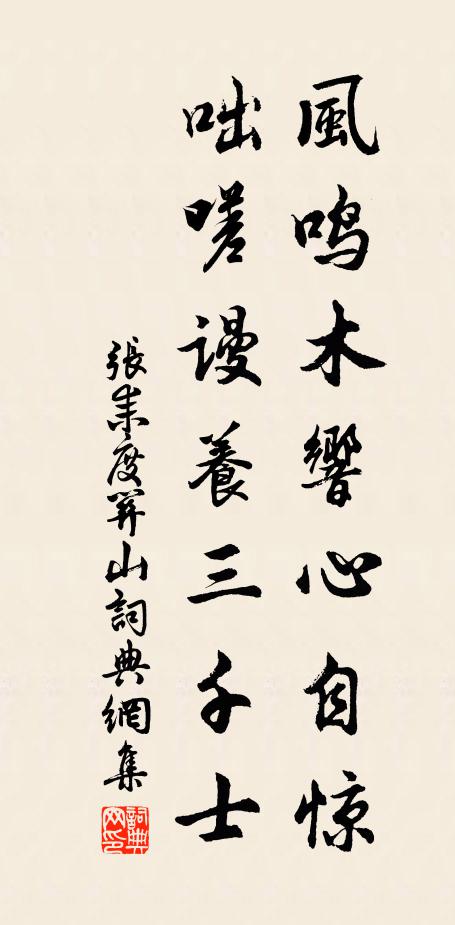 風鳴木響心自惊
咄嗟謾養三千士
張耒度關山詞典網集
詞典网印